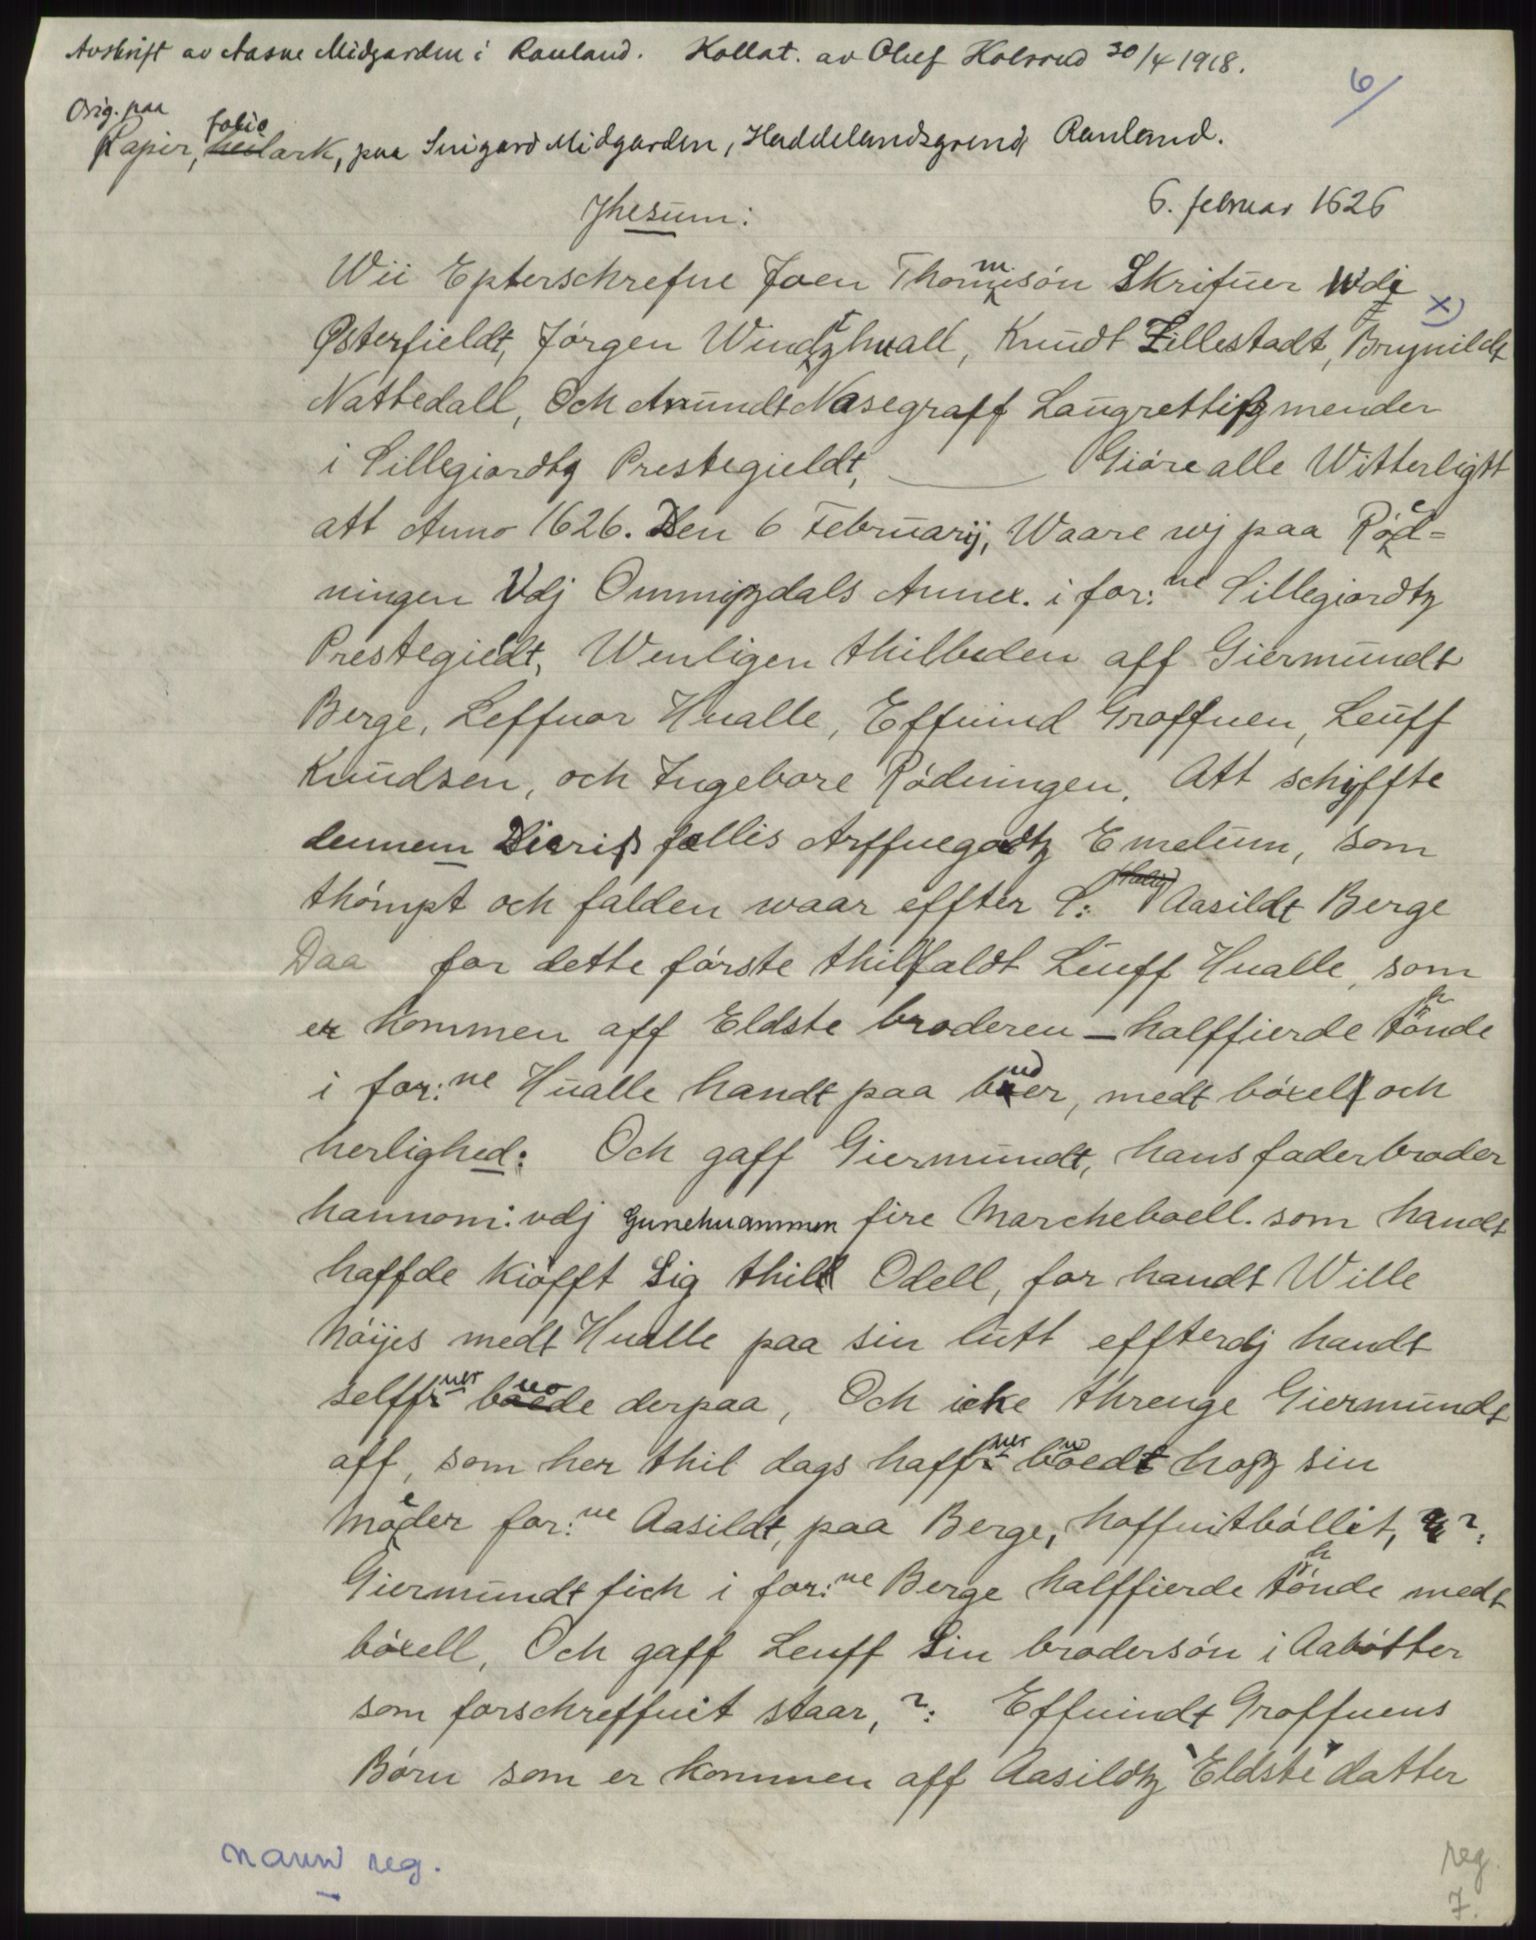 Avskrift av Aasne Midgarden i Rauland. Kollat. av Oluf Kolsrud 30/4 1918.
6/
Orig. paa
Papir, folio helark, paa Suigard Midgarden, Haddelandsgrend, Rauland.
6. februar 1626
Jhesum:
Wii Epterschrefne Joen Thommisón Skrifuer Wdi x)
Østerfieldt, Jórgen Windtzhuall, Knudt Lillestadt, Brynildt
Nattedall, Och Amundt Nasegraff Laugrettiß mender
i Sillegiordtz Prestegieldt, Gióre alle Witterligtt
att Anno 1626. Den 6 Februarij, Waare wj paa Ród=
ningen Vdj Ommißdals Annex. i for:ne Sillegiordtz
Prestegieldt, Wenligen thilbeden aff Giermundt
Berge, Leffuor Hualle, Effuind Groffuen, Leuff
Knudsen, och Ingebore Ródningen. Att schyffte
dennem Dieriß fellis Arffuegodtz Emelum, som
thómpt och falden waar effter S: (salig) Aasildt Berge
Daa for dette fórste thilfaldt Leuff Hualle, som
er kommen aff Eldste broderen – halffierde tónde
i for:ne Hualle handt paa boer, medt bóxell och
herlighed: Och gaff Giermundt, hans faderbroder
hannom: vdj Gunehuammen fire Marcheboell. som handt
haffde kiófft Sig thill Odell, for handt Wille
nóijes medt Hualle paa sin lutt effterdj handt
selffuer boede derpaa, Och icke threnge Giermundt
aff, som her thil dags haffuer boedt hoß sin
móder for:ne Aasildt, paa Berge, hoffuitbóllit,
Giermundt fich i for:ne Berge halffierde tónde medt
bóxell, Och gaff Leuff Sin brodersón i Aabótter
som forschreffuit staar, Effuindt Groffuens
Bórn som er kommen aff Aasildtz Eldste datter
navn reg.
reg.
7.